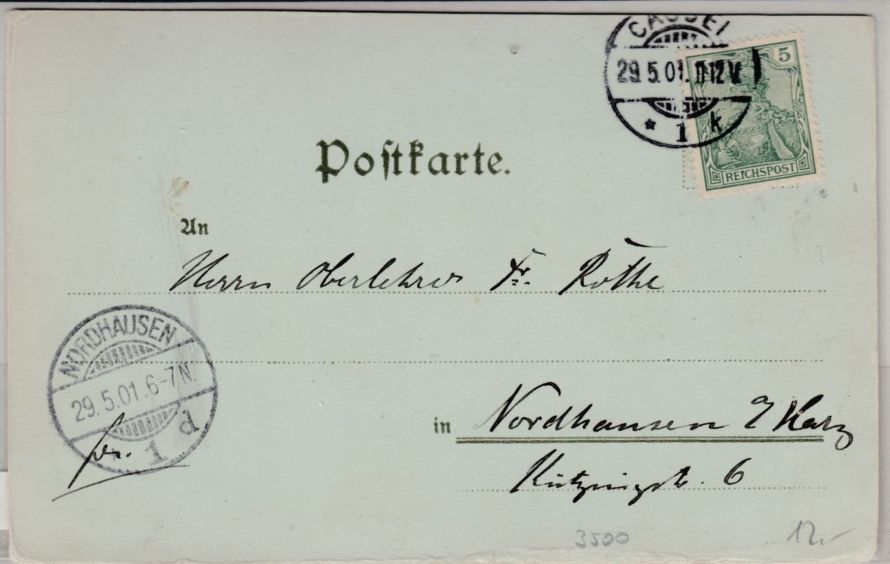 CASSEL
29.5.01.11-12V.
* 1 k
5
REICHSPOST
Postkarte.
An
Herrn Oberlehrer Fr. Rothe
NORDHAUSEN
29.5.01.6-7N.
1 d
in Nordhausen a/Harz
Kützingstr. 6
fr.
3500
12,-